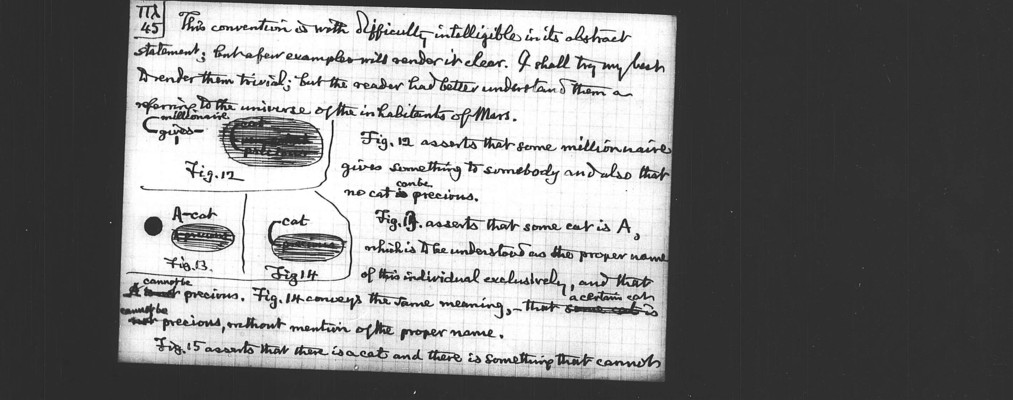 Πλ
45
This convention is with difficulty intelligible in its abstract
statement; but a few examples will render it clear. I shall try my best
to render them trivial; but the reader had better understand them as
referring to the universe of the inhabitants of Mars.
millionaire
gives
cat
precious
Fig. 12
Fig. 12 asserts that some millionaire
gives something to somebody and also that
can be
no cat is precious.
A-cat
precious
Fig. 13.
cat
precious
Fig 14
Fig. 13. asserts that some cat is A,
which is to be understood as the proper name
of this individual exclusively, and that
cannot be
precious. Fig. 14 conveys the same meaning, – that some cat is
a certain cat
cannot be
not precious, without mention of the proper name.
Fig. 15 asserts that there is a cat and there is something that cannot